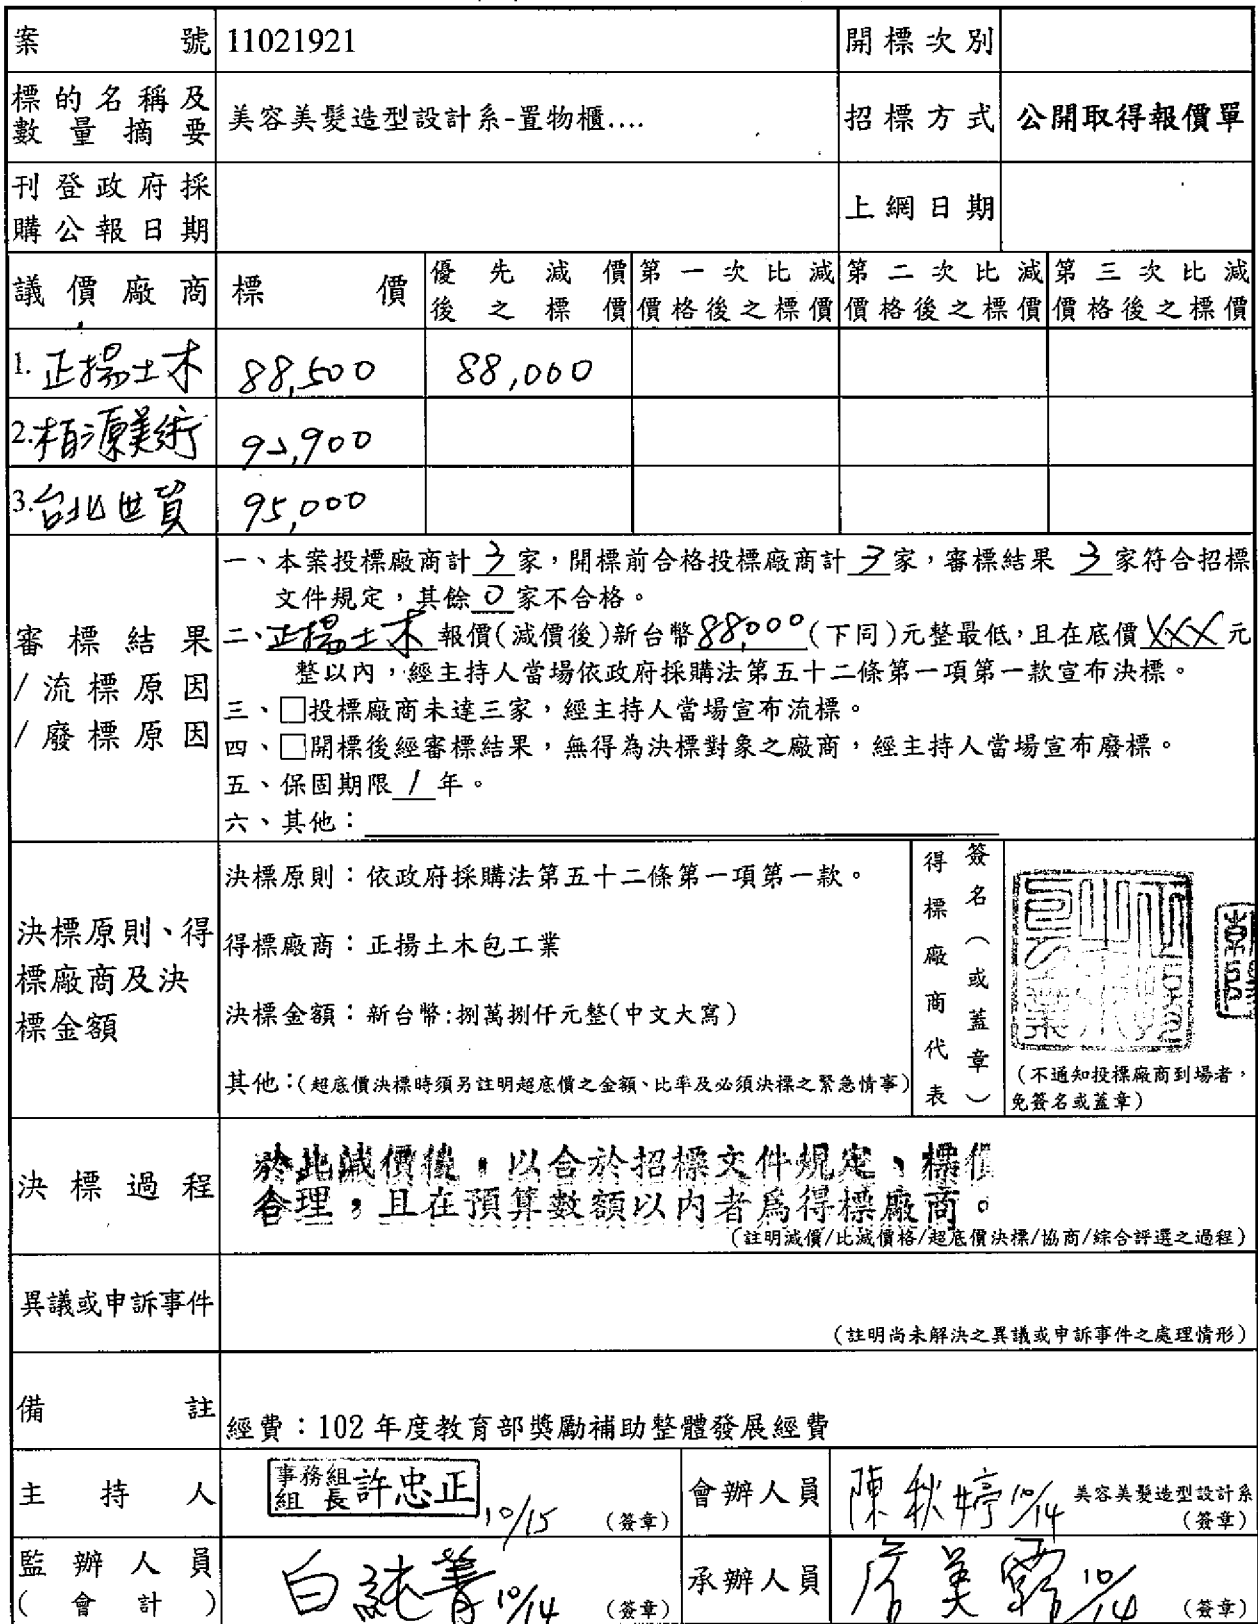 案號 11021921 開標次別
標的名稱及數量摘要 美容美髮造型設計系-置物櫃.... 招標方式 公開取得報價單
刊登政府採購公報日期 上網日期
議價廠商 標價 優先減價後之標價 第一次比減價格後之標價 第二次比減價格後之標價 第三次比減價格後之標價
1. 正揚土木 88,500 88,000
2. 栢源美術 92,900
3. 台北世貿 95,000
審標結果/流標原因/廢標原因
一、本案投標廠商計 3 家，開標前合格投標廠商計 3 家，審標結果 3 家符合招標
文件規定，其餘 0 家不合格。
二、正揚土木 報價(減價後)新台幣 88,000 (下同)元整最低，且在底價 XXX 元
整以內，經主持人當場依政府採購法第五十二條第一項第一款宣布決標。
三、□投標廠商未達三家，經主持人當場宣布流標。
四、□開標後經審標結果，無得為決標對象之廠商，經主持人當場宣布廢標。
五、保固期限 1 年。
六、其他：
決標原則、得標廠商及決標金額
決標原則：依政府採購法第五十二條第一項第一款。
得標廠商：正揚土木包工業
決標金額：新台幣:捌萬捌仟元整(中文大寫)
其他：(超底價決標時須另註明超底價之金額、比率及必須決標之緊急情事)
得標廠商代表簽名（或蓋章）
(不通知投標廠商到場者，
免簽名或蓋章)
決標過程
於此減價後，以合於招標文件規定、標價
合理，且在預算數額以內者為得標廠商。
(註明減價/比減價格/超底價決標/協商/綜合評選之過程)
異議或申訴事件
(註明尚未解決之異議或申訴事件之處理情形)
備註
經費：102 年度教育部獎勵補助整體發展經費
主持人 事務組組長 許忠正 10/15 (簽章) 會辦人員 陳秋婷 10/14 美容美髮造型設計系 (簽章)
監辦人員(會計) 白純菁 10/14 (簽章) 承辦人員 美霜 10/14 (簽章)